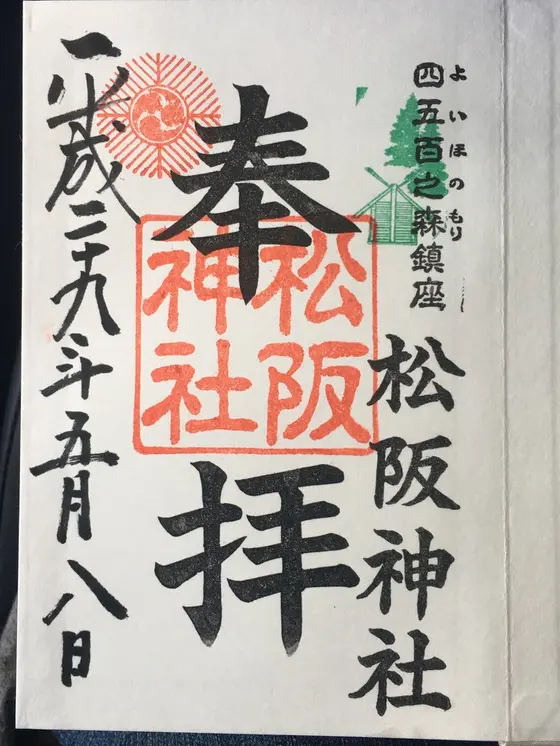 四五百之森鎮座
よいほのもり
松阪神社
奉拝
松阪
神社
平成二十九年五月八日